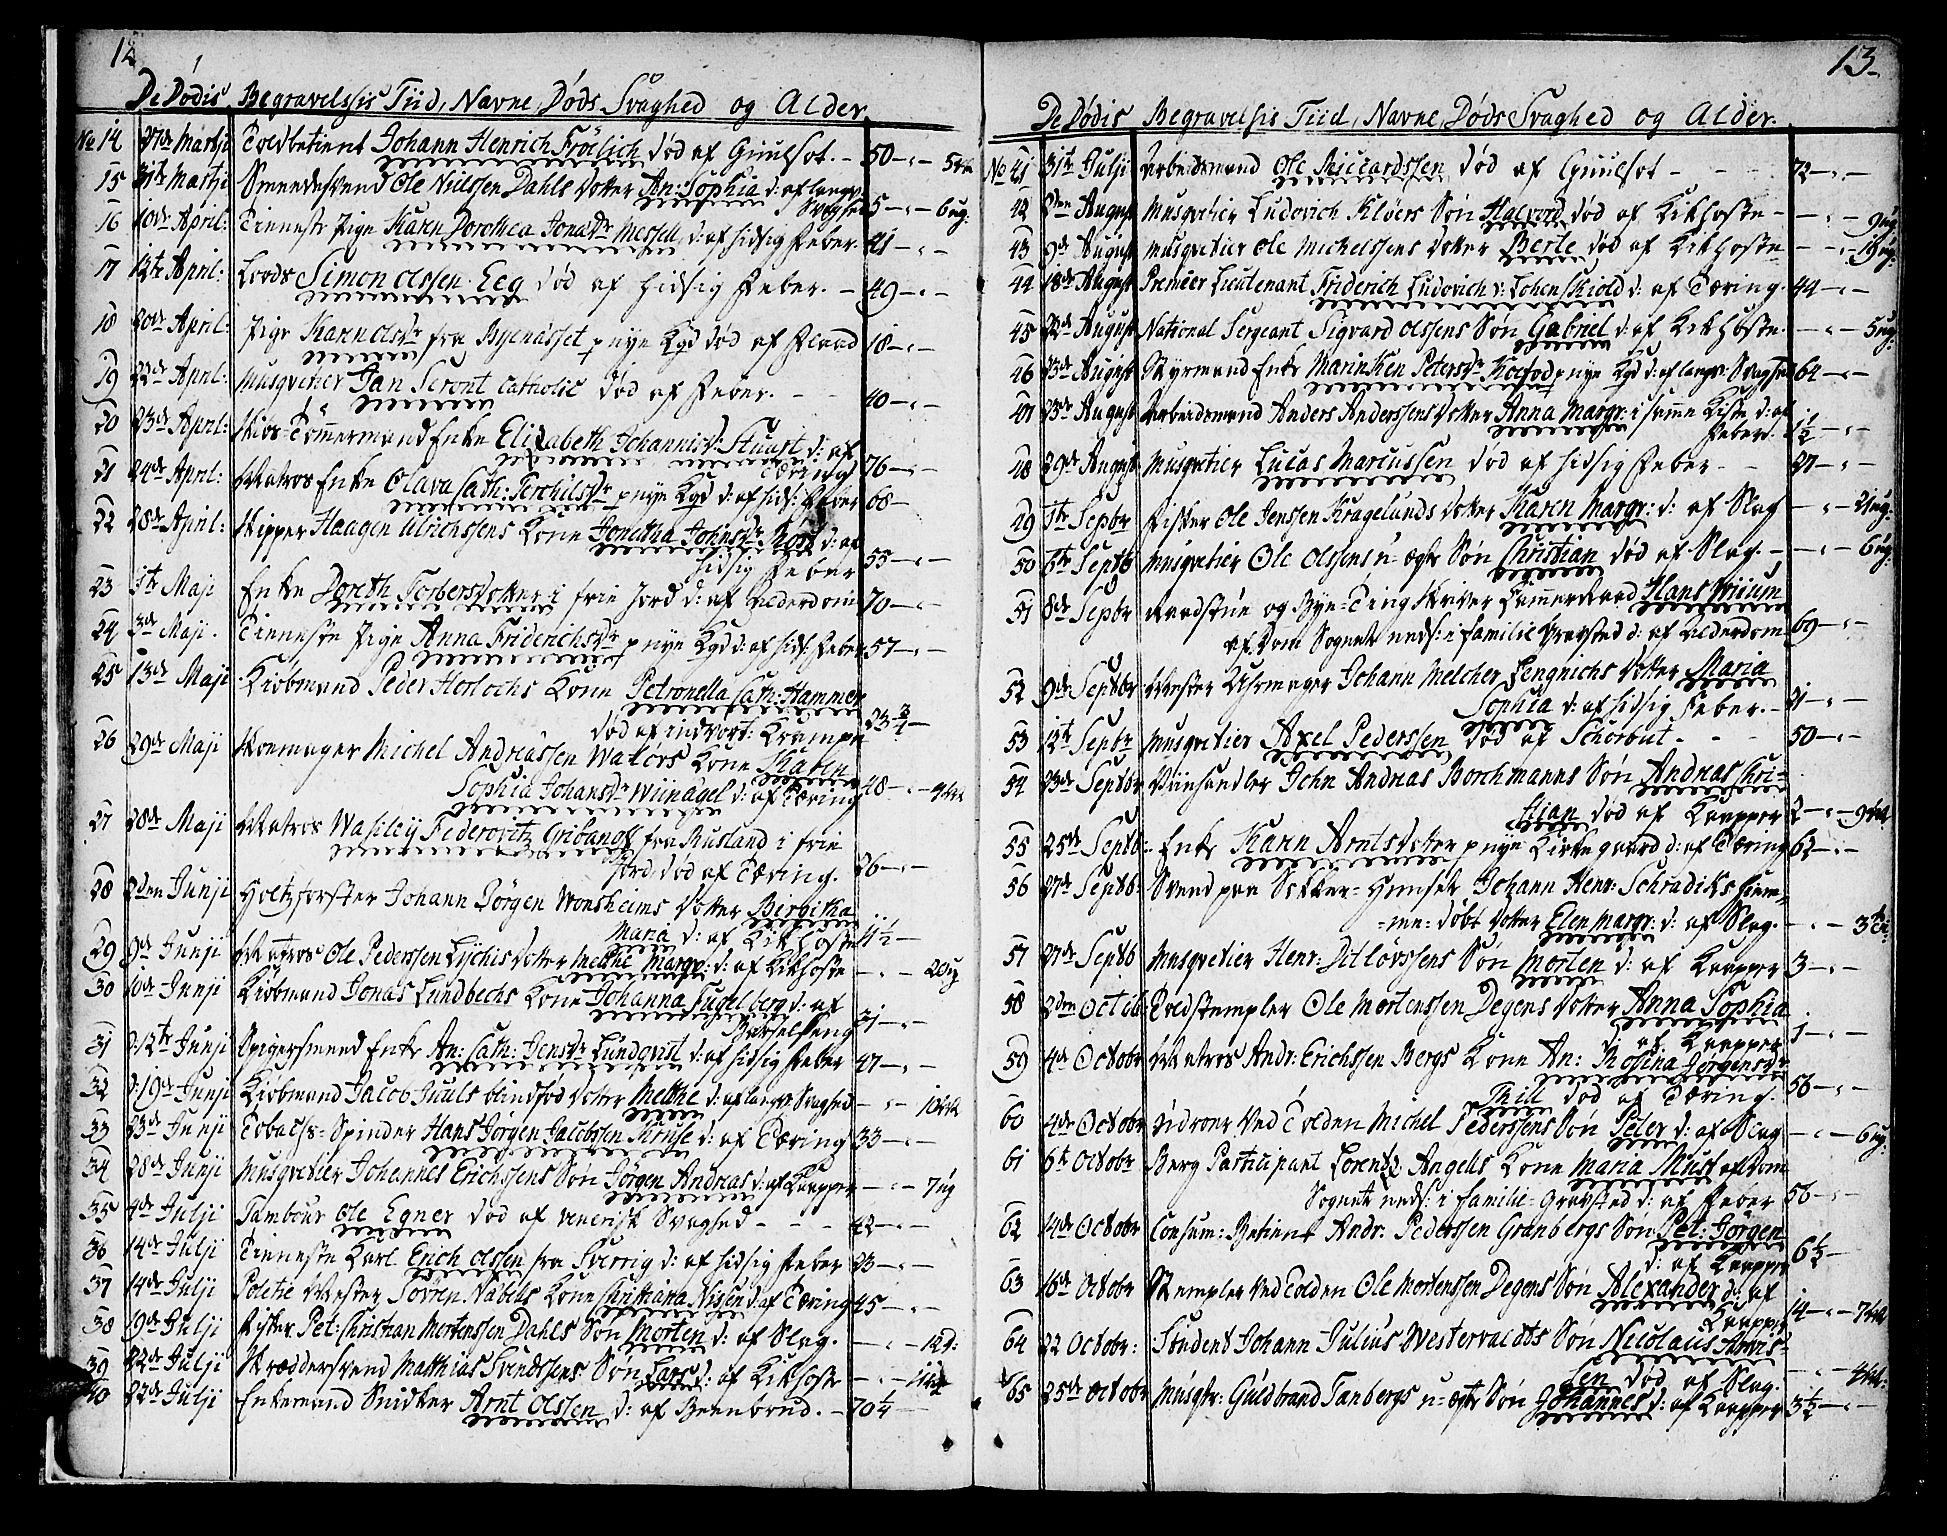 12
De Dödis Begravelssis Tiid, Navne, Döds Svaghed og Alder
No 14 27de Martji Toldbetient Johann Henrich Frölich död af Guulsot. - 50 - " -
15 31te Martji Smedesvend Ole Nielssen Dahls Dotter An: Sophia d: af langv:
Svaghed 5 - " - 6 ug:
16 10de April: Tieneste Pige Karn Dorothea Jonasdr Messell d: af hidsig Feber. 21 - " -
17 12te April: Lods Simon Olssen Eeg död af hidsig Feber. - 49 - " -
18 20de April: Pige Karn Olsdr fra Byenæsset p nye Kgd död af Flod 18 - " -
19 22de April: Musqvetier Jan Seront Catholic död af Feber. - - 40 - " -
20 23de April: Skibs-Tömmermand Enke Elizabeth Johannisd: Stuart d: af
Tæring 76 - " -
21 24de April: Matros Enke Olava Cath: Terchilsdr p nye Kgd d: af hids: Feber 68 -
22 28de April: Skipper Haagen Ulrichssens Kone Jonetha Johnsdr Rost d: af
hidsig Feber 55 - " -
23 1te Maji Enke Doreth Torbersdotter i frie Jord d: af Alderdom 70 - " -
24 3de Maji. Tieneste Pige Anna Friderichsdr p nye Kgd d: af hids: Feber 57 - " -
25 13de Maji Kiöbmand Peder Horlochs Kone Petronella Cath: Hammer
död af indvort: Krampe 23 3/4 -
26 29de Maji Skomager Michel Andreassen Walörs Kone Karen
Sophia Johansdr Wiinagel d: af Tæring 48 - " -
27 28de Maji Matros Wasiley Federovitz Gribanoff fra Rusland i frie
Jord, död af Tæring. 26 - " -
28 2den Junji Holtzforster Johann Jörgen Wonsheims Dotter Bergitha
Maria d: af Kikhoste 4 1/2 -
29 9de Junji Matros Ole Pederssen Lychis Dotter Methe Margr: d: af Kikhoste - " - 20 ug
30 10de Junji Kiöbmand Jonas Lundbechs Kone Johanna Fugelberg d: af
Barselseng 31 - " -
31 12te Junji Spigersmed Enke An: Cath: Jensdr Lundqvist d: af hidsig Feber 47 - " -
32 19de Junji Kiöbmand Jacob Juuls blindfød Dotter Methe d: af langv: Svaghed - " -
33 23de Junji Tobachs-Spinder Hans Jörgen Jacobssen Kruse d: af Tæring 33 - " -
34 28de Junji Musqvetier Johannes Erichssens Sön Jörgen Andreas d: af Kopper - " - 7 ug
35 4de Julji Tambour Ole Egner död af venerisk Svaghed - - - 42 - " -
36 14de Julji Tieneste Karl Erich Olssen fra Sverrig d: af hidsig Feber 23 - " -
37 14de Julji Politie Mester Sövren Nabels Kone Christiana Nissen d: af Tæring 45 - " -
38 19de Julji Fisker Pet: Christian Mortenssen Dahls Sön Morten d: af Slag. - " - 12 d:
39 22de Julji Skræddersvend Matthias Svendssens Sön Lars d: af Kikhoste - " -
40 22de Julji Enkemand Snidker Arnt Olssen d: af Beenbrud. - 70 1/4 -
13.
De Dödis Begravelsis Tiid, Navne, Döds Svaghed og Alder.
No 41 31te Julji Arbeidsmand Ole Riccardssen död af Guulsot - - - - 72 - " -
42 2den August Musqvetier Ludovich Klöers Sön Halvord död af Kikhoste - - " - 9 ug:
43 9de August Musqvetier Ole Michelssens Dotter Berte död af Kikhoste - " - 19 ug:
44 18de August Premier Lieutenant Friderich Ludovich v: Lohenskiold d: af Tæring. 44 - " -
45 22de August National Sergeant Sigvard Olssens Sön Gabriel d: af Kikhoste. - " - 5 ug:
46 23de August Styrmand Enke Marinken Petersdr Kofod p nye Kgd d: af langv: Svaghed 64 - " -
47 23de August Arbeidsmand Anders Anderssens Dotter Anna Margr: i samme Kiste d: af
Feber. 1 1/2 - " -
48 29de August Musqvetier Lucas Marcussen död af hidsig Feber - - 27 - " -
49 1te Sepbr Fisker Ole Jenssen Kragelunds Dotter Karn Margr: d: af Slag - " - 2 ug:
50 6te Septb Musqvetier Ole Olssens u-ægte Sön Christian död af Slag. - - " - 6 ug:
51 8de Sepbr Raadstue og Bye-Ting Skriver Cammerraad Hans Wium
af Dom Sognet neds: i familie Gravsted d: af Alderdom 69 - " -
52 9de Septbr Mester Uhrmager Johann Melcher Lengnichs Dotter Maria
Sophia d: af hidsig Feber. - 21 - " -
53 12te Sepbr Musqvetier Axel Pederssen död af Schörbut - - - 50 - " -
54 23de Septbr Viinhandler John Andreas Borchmanns Sön Andreas Chri-
stian död af Kopper 2 - " -
55 25de Septb: Enke Karn Arntsdotter p nye Kirkegaard d: af Tæring 62 - " -
56 27de Septb: Svend paa Sukker-Huuset Johann Henr: Schradiks hiem-
me-döbt Dotter Elen Margr: d: af Slag. - " -
57 27de Septb Musqvetier Henr: Ditlövssens Sön Morten d: af Kopper 3 - " -
58 2den Octob: Toldstempler Ole Mortenssen Degens Dotter Anna Sophia
d: af Kopper 1 - " -
59 4de Octobr Matros Andr: Erichssen Bergs Kone An: Rosina Jörgensdr
Thill död af Tæring. 56 - " -
60 4de Octobr Vidroer ved Tolden Michel Pederssens Sön Peter d: af Slag - " - 6 ug:
61 6te Octobr Berg Participant Lorentz Angells Kone Maria Must af Dom
Sognet neds: i familie-Gravsted d: af Feber 56 - " -
62 14de Octobr Consum: Betient Andr: Pederssen Granbergs Sön Pet: Jörgen
d: af Kopper 6 1/2 -
63 16de Octobr Stempler ved Tolden Ole Mortenssen Degens Sön Alexander d: af
Kopper 14 - " -
64 22 Octobr: Student Johann Julius Westervaldts Sön Nicolaus Arvis-
sen död af Slag. - " -
65 25de Octobr Musqtr: Guldbrand Tanbergs u-ægte Sön Johannes d: af Kopper 3 1/2 - " -